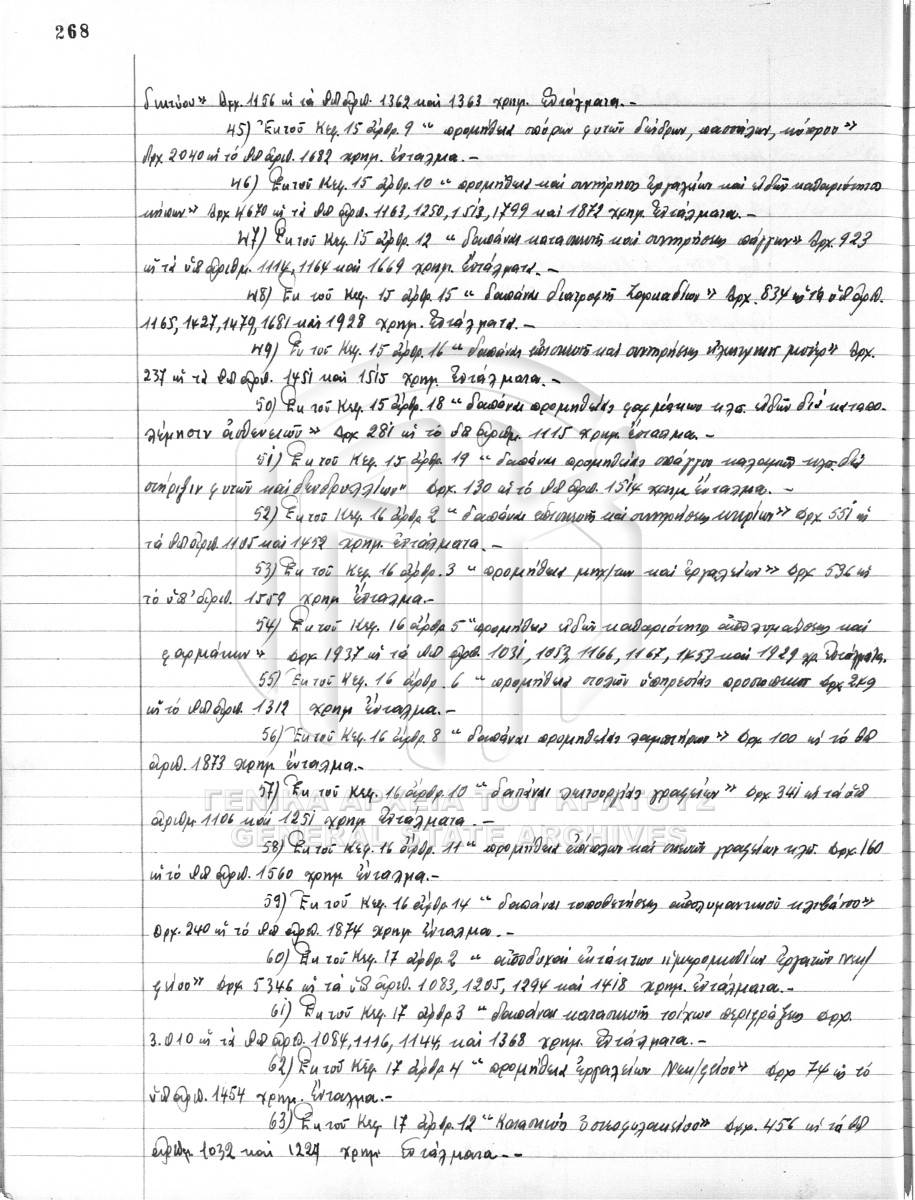 268
δικτύου» Δρχ. 1156 εἰς τὰ ὑπ' ἀριθ. 1362 καὶ 1363 χρημ. Ἐντάλματα.-
45) Ἐκ τοῦ Κεφ. 15 ἄρθρ. 9 " προμήθεια σπόρων φυτῶν δένδρων, πασσάλων, κόπρου »
Δρχ. 2040 εἰς τὸ ὑπ' ἀριθ. 1682 χρημ. ἔνταλμα.-
46) Ἐκ τοῦ Κεφ. 15 ἄρθρ. 10 " προμήθεια καὶ συντήρησις ἐργαλείων καὶ εἰδῶν καθαριότητος
κήπων» Δρχ. 4670 εἰς τὰ ὑπ' ἀριθ. 1163, 1250, 1513, 1799 καὶ 1872 χρημ. Ἐντάλματα.-
47) Ἐκ τοῦ Κεφ. 15 ἄρθρ. 12 " δαπάναι κατασκευῆς καὶ συντηρήσεως πάγκων» Δρχ. 923
εἰς τὰ ὑπ' ἀριθμ. 1114, 1164 καὶ 1669 χρημ. Ἐντάλματα.-
48) Ἐκ τοῦ Κεφ. 15 ἄρθρ. 15 " δαπάναι διατροφῆς ζαρκαδίων » Δρχ. 834 εἰς τὰ ὑπ' ἀριθ.
1165, 1427, 1479, 1681 καὶ 1928 χρημ. Ἐντάλματα.-
49) Ἐκ τοῦ Κεφ. 15 ἄρθρ. 16 " δαπάναι ἐπισκευῆς καὶ συντηρήσεως ἠλεκτρικοῦ μοτέρ» Δρχ.
237 εἰς τὰ ὑπ' ἀριθ. 1451 καὶ 1515 χρημ. Ἐντάλματα.-
50) Ἐκ τοῦ Κεφ. 15 ἄρθρ. 18 " δαπάναι προμηθείας φαρμάκων κλπ. εἰδῶν διὰ καταπο-
λέμησιν ἀσθενειῶν » Δρχ. 281 εἰς τὸ ὑπ' ἀριθμ. 1115 χρημ. ἔνταλμα.-
51) Ἐκ τοῦ Κεφ. 15 ἄρθρ. 19 " δαπάναι προμηθείας σπάγγου καλαμιῶν κλπ. διὰ
στήριξιν φυτῶν καὶ δενδρυλλίων" Δρχ. 130 εἰς τὸ ὑπ' ἀριθ. 1514 χρημ. ἔνταλμα.-
52) Ἐκ τοῦ Κεφ. 16 ἄρθρ. 2 " δαπάναι ἐπισκευῆς καὶ συντηρήσεως κτιρίων» Δρχ. 551 εἰς
τὰ ὑπ' ἀριθ. 1105 καὶ 1452 χρημ. Ἐντάλματα.-
53) Ἐκ τοῦ Κεφ. 16 ἄρθρ. 3 " προμήθεια μηχ/των καὶ ἐργαλείων» Δρχ. 596 εἰς
τὸ ὑπ' ἀριθ. 1559 χρημ. ἔνταλμα.-
54) Ἐκ τοῦ Κεφ. 16 ἄρθρ. 5 " προμήθεια εἰδῶν καθαριότητος ἀπολυμάνσεως καὶ
φαρμάκων » Δρχ. 1937 εἰς τὰ ὑπ' ἀριθ. 1031, 1053, 1166, 1167, 1453 καὶ 1929 χρ. Ἐντάλματα.
55) Ἐκ τοῦ Κεφ. 16 ἄρθρ. 6 " προμήθεια στολῶν ὑπηρεσίας προσωπικοῦ Δρχ. 249
εἰς τὸ ὑπ' ἀριθ. 1312 χρημ. ἔνταλμα.-
56) Ἐκ τοῦ Κεφ. 16 ἄρθρ. 8 " δαπάναι προμηθείας λαμπτήρων» Δρχ. 100 εἰς τὸ ὑπ'
ἀριθ. 1873 χρημ. ἔνταλμα.-
57) Ἐκ τοῦ Κεφ. 16 ἄρθρ. 10 " δαπάναι λειτουργίας γραφείων » Δρχ. 341 εἰς τὰ ὑπ'
ἀριθμ. 1106 καὶ 1251 χρημ. Ἐντάλματα.-
58) Ἐκ τοῦ Κεφ. 16 ἄρθρ. 11 " προμήθεια ἐπίπλων καὶ σκευῶν γραφείων κλπ. Δρχ. 160
εἰς τὸ ὑπ' ἀριθ. 1560 χρημ. ἔνταλμα.-
59) Ἐκ τοῦ Κεφ. 16 ἄρθρ. 14 " δαπάναι τοποθετήσεως ἀπολυμαντικοῦ κλιβάνου»
Δρχ. 240 εἰς τὸ ὑπ' ἀριθ. 1874 χρημ. ἔνταλμα.-
60) Ἐκ τοῦ Κεφ. 17 ἄρθρ. 2 " ἀποδοχαὶ ἐκτάκτων ἡμερομισθίων ἐργατῶν Νεκ/
φείου» Δρχ. 5346 εἰς τὰ ὑπ' ἀριθ. 1083, 1205, 1294 καὶ 1418 χρημ. Ἐντάλματα.-
61) Ἐκ τοῦ Κεφ. 17 ἄρθρ. 3 " δαπάναι κατασκευῆς τοίχου περιφράξεως Δρχ.
3.010 εἰς τὰ ὑπ' ἀριθ. 1084, 1116, 1144 καὶ 1368 χρημ. Ἐντάλματα.-
62) Ἐκ τοῦ Κεφ. 17 ἄρθρ. 4 " προμήθεια ἐργαλείων Νεκ/φείου» Δρχ. 74 εἰς τὸ
ὑπ' ἀριθ. 1454 χρημ. ἔνταλμα.-
63) Ἐκ τοῦ Κεφ. 17 ἄρθρ. 12 " Κατασκευὴ ὀστεοφυλακείου» Δρχ. 456 εἰς τὰ ὑπ'
ἀριθμ. 1032 καὶ 1227 χρημ. Ἐντάλματα.--
ΓΕΝΙΚΑ ΑΡΧΕΙΑ ΤΟΥ ΚΡΑΤΟΥΣ
GENERAL STATE ARCHIVES